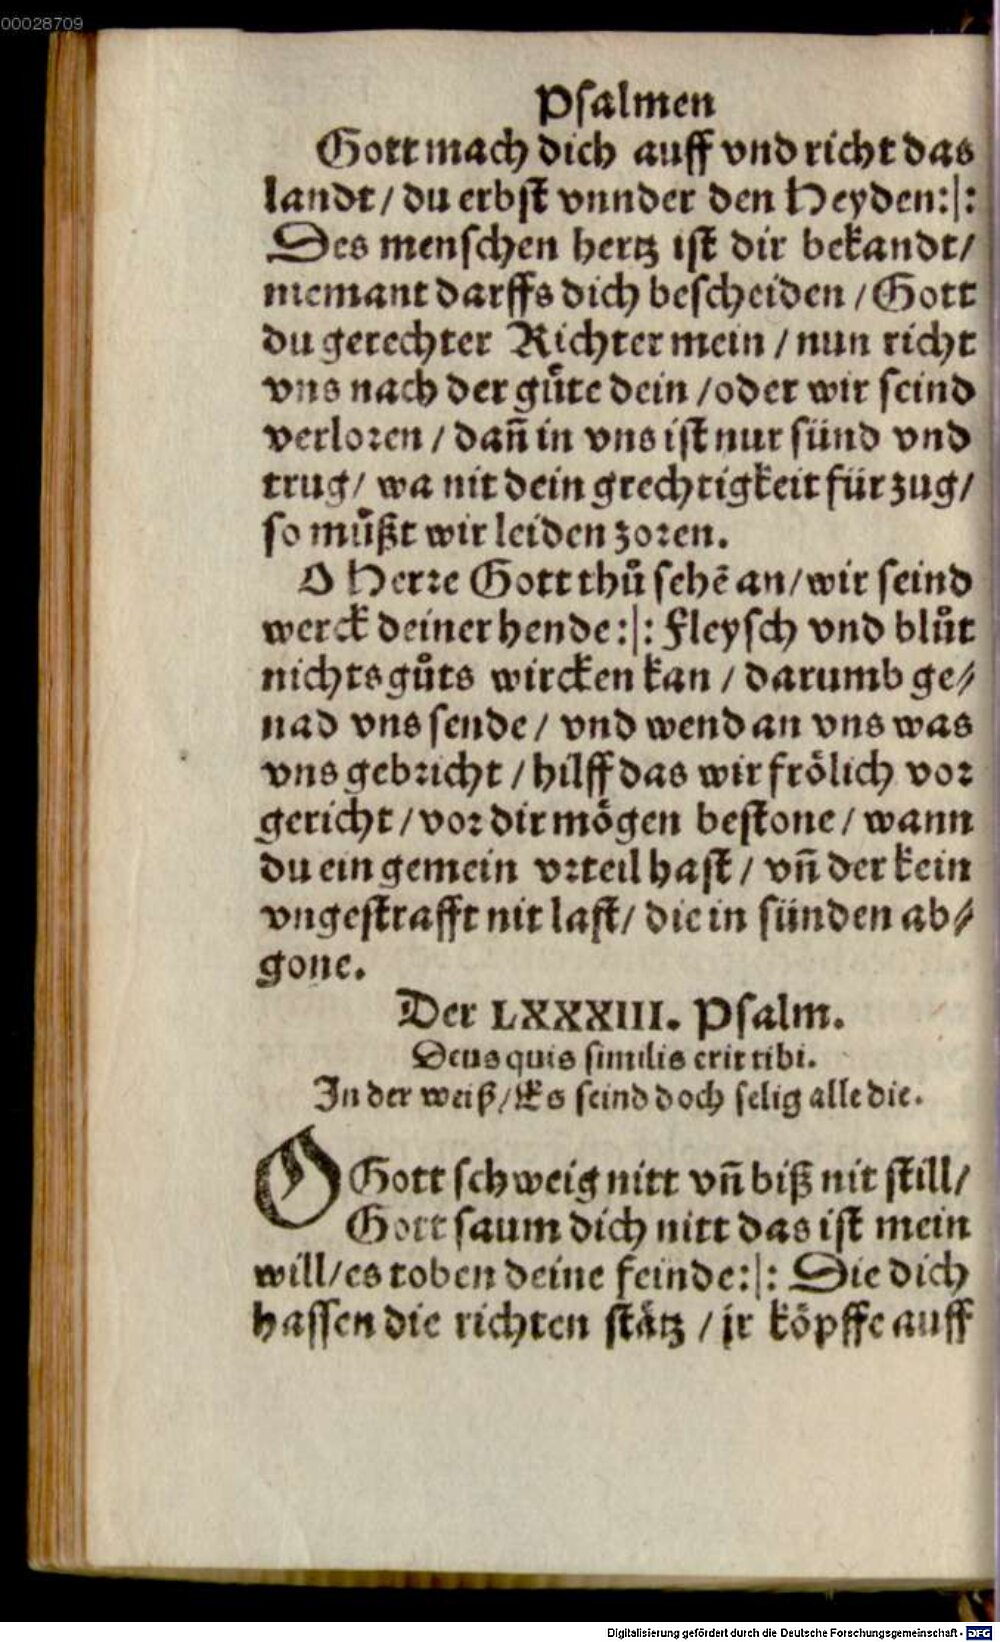 00028709
Psalmen
Gott mach dich auff vnd richt das
landt / du erbst vnnder den Heyden:|:
Des menschen hertz ist dir bekandt /
niemant darffs dich bescheiden / Gott
du gerechter Richter mein / nun richt
vns nach der gůte dein / oder wir seind
verloren / dañ in vns ist nur sünd vnd
trug / wa nit dein grechtigkeit für zug /
so můßt wir leiden zoren.
O Herre Gott thů sehē an / wir seind
werck deiner hende:|: Fleysch vnd blůt
nichts gůts wircken kan / darumb ge⸗
nad vns sende / vnd wend an vns was
vns gebricht / hilff das wir frölich vor
gericht / vor dir mögen bestone / wann
du ein gemein vrteil hast / vñ der kein
vngestrafft nit last / die in sünden ab⸗
gone.
Der LXXXIII. Psalm.
Deus quis similis erit tibi.
In der weiß / Es seind doch selig alle die.
O Gott schweig nitt vñ biß nit still /
Gott saum dich nitt das ist mein
will / es toben deine feinde:|: Die dich
hassen die richten stätz / jr köpffe auff
Digitalisierung gefördert durch die Deutsche Forschungsgemeinschaft - DFG